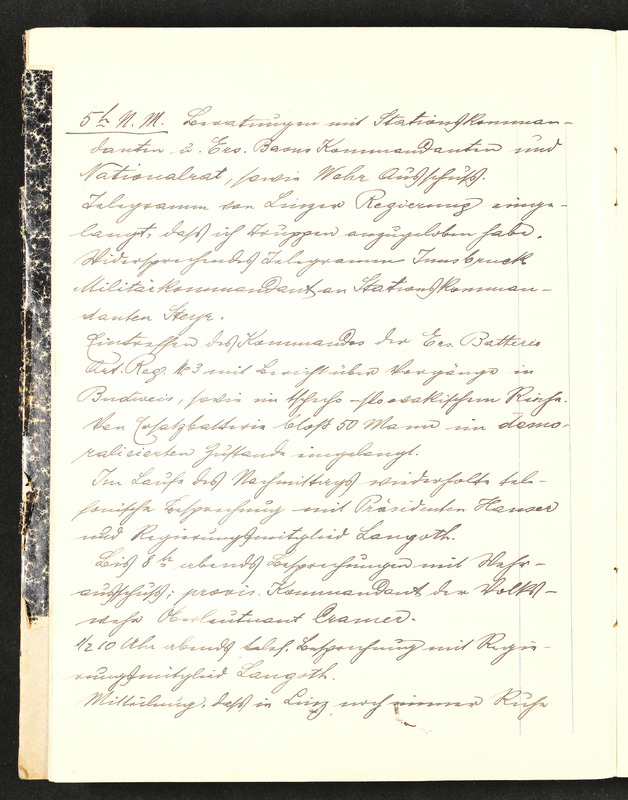 5h N.M. Beratungen mit Stationskomman-
danten u. Ers. Baons Kommandanten und
Nationalrat, sowie Wehr Ausschuß.
Telegramm von Linzer Regierung einge-
langt, daß ich Truppen anzugeloben habe.
Widersprechendes Telegramm Innsbruck
Militärkommandant an Stationskomman-
danten Steyr.
Eintreffen des Kommandos der Ers. Batterie
Art. Reg. № 3 mit Bericht über Vorgänge in
Budweis, sowie im tschecho-slowakischen Reiche.
Von Ersatzbatterie bloß 50 Mann im demo-
ralisierten Zustande eingelangt.
Im Laufe des Nachmittags wiederholte tele-
fonische Besprechung mit Präsidenten Hauser
und Regierungsmitglied Langoth.
Bis 8h abends Besprechungen mit Wehr-
ausschuß; provis. Kommandant der Volks-
wehr Oberleutnant Cramer.
1/2 10 Uhr abends telef. Besprechung mit Regie-
rungsmitglied Langoth.
Mitteilung, daß in Linz noch immer Ruhe